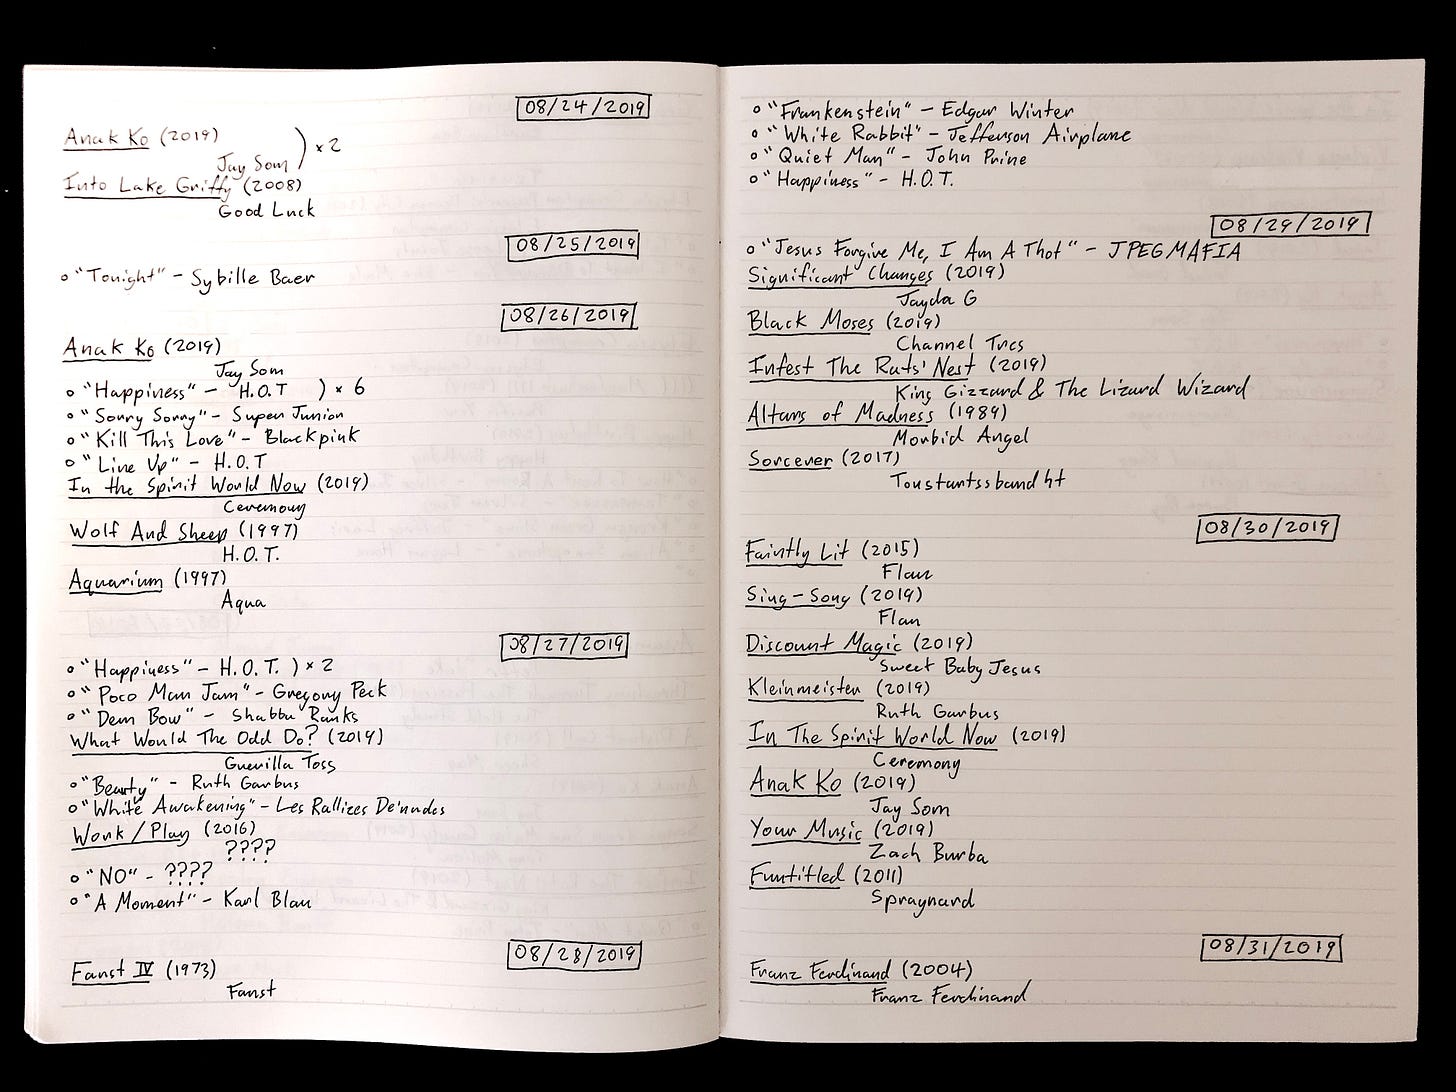 08/24/2019
Anak Ko (2019)
Jay Som ) × 2
Into Lake Griffy (2008)
Good Luck
08/25/2019
o "Tonight" - Sybille Baer
08/26/2019
Anak Ko (2019)
Jay Som
o "Happiness" - H.O.T ) × 6
o "Sorry Sorry" - Super Junior
o "Kill This Love" - Blackpink
o "Line Up" - H.O.T
In the Spirit World Now (2019)
Ceremony
Wolf And Sheep (1997)
H.O.T.
Aquarium (1997)
Aqua
08/27/2019
o "Happiness" - H.O.T. ) × 2
o "Poco Man Jam" - Gregory Peck
o "Dem Bow" - Shabba Ranks
What Would The Odd Do? (2019)
Guerilla Toss
o "Beauty" - Ruth Garbus
o "White Awakening" - Les Rallizes De'nudes
Work/Play (2016)
????
o "NO" - ????
o "A Moment" - Karl Blau
08/28/2019
Faust IV (1973)
Faust
o "Frankenstein" - Edgar Winter
o "White Rabbit" - Jefferson Airplane
o "Quiet Man" - John Prine
o "Happiness" - H.O.T.
08/29/2019
o "Jesus Forgive Me, I Am A Thot" - JPEGMAFIA
Significant Changes (2019)
Jayda G
Black Moses (2019)
Channel Tres
Infest The Rats' Nest (2019)
King Gizzard & The Lizard Wizard
Altars of Madness (1989)
Morbid Angel
Sorcerer (2017)
Toustantssband ht
08/30/2019
Faintly Lit (2015)
Flan
Sing-Song (2019)
Flan
Discount Magic (2019)
Sweet Baby Jesus
Kleinmeister (2019)
Ruth Garbus
In The Spirit World Now (2019)
Ceremony
Anak Ko (2019)
Jay Som
Your Music (2019)
Zach Burba
Funtitled (2011)
Spraynard
08/31/2019
Franz Ferdinand (2004)
Franz Ferdinand